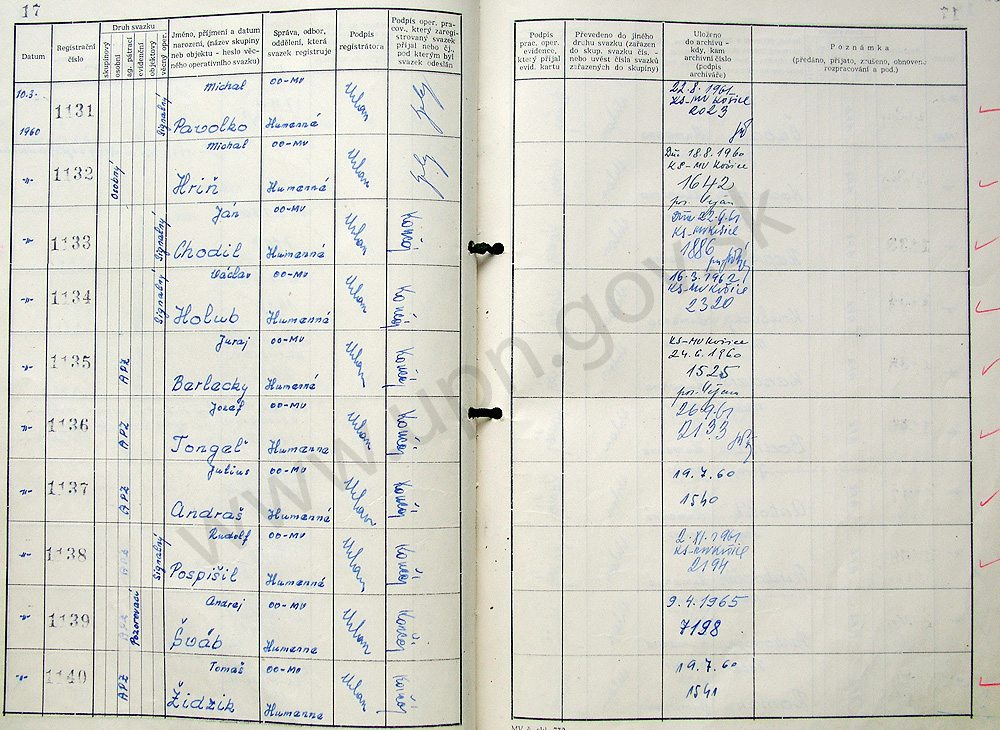 17
Datum
Registrační číslo
Druh svazku
skupinový
osobní
ag. pátrací
evidenční
objektový
věcný oper.
Jméno, příjmení a datum
narození, (název skupiny
neb objektu - heslo věc-
ného operativního svazku)
Správa, odbor,
oddělení, která
svazek registruje
Podpis
registrátora
Podpis oper. pra-
cov., který zaregi-
strovaný svazek
přijal nebo čj.,
pod kterým byl
svazek odeslán
Podpis
prac. oper.
evidence,
který přijal
evid. kartu
Převedeno do jiného
druhu svazku (zařazen
do skup. svazku čís. -
nebo uvést čísla svazků
zařazených do skupiny)
Uloženo
do archivu -
kdy, kam
archivní číslo
(podpis
archiváře)
Poznámka
(předáno, přijato, zrušeno, obnoveno
rozpracování a pod.)
10.3.
1960
1131
Signálný
Michal
Pavolko
OO-MV
Humenné
Urban
22.8.1961
KS-MV Košice
2023
-"-
1132
Osobný
Michal
Hriň
OO-MV
Humenné
Urban
Dňa 18.8.1960
KS-MV Košice
1642
-"-
1133
Signálný
Ján
Chodil
OO-MV
Humenné
Urban
Dňa 22.9.61
KS-MV Košice
1886
-"-
1134
Signálný
Václav
Holub
OO-MV
Humenné
Urban
16.3.1962
KS-MV Košice
2320
-"-
1135
APZ
Juraj
Berlecky
OO-MV
Humenné
Urban
KS-MV Košice
24.6.1960
1525
-"-
1136
APZ
Jozef
Tongeľ
OO-MV
Humenne
Urban
26.9.61
2193
-"-
1137
APZ
Julius
Andraš
OO-MV
Humenné
Urban
19.7.60
1540
-"-
1138
Signálný
Rudolf
Pospíšil
OO-MV
Humenné
Urban
2.XI.1961
KS-MV Košice
2194
-"-
1139
APZ
Pozorovací
Andrej
Šváb
OO-MV
Humenné
Urban
9.4.1965
7198
-"-
1140
APZ
Tomaš
Židzik
OO-MV
Humenne
Urban
19.7.60
1541
www.upn.gov.sk